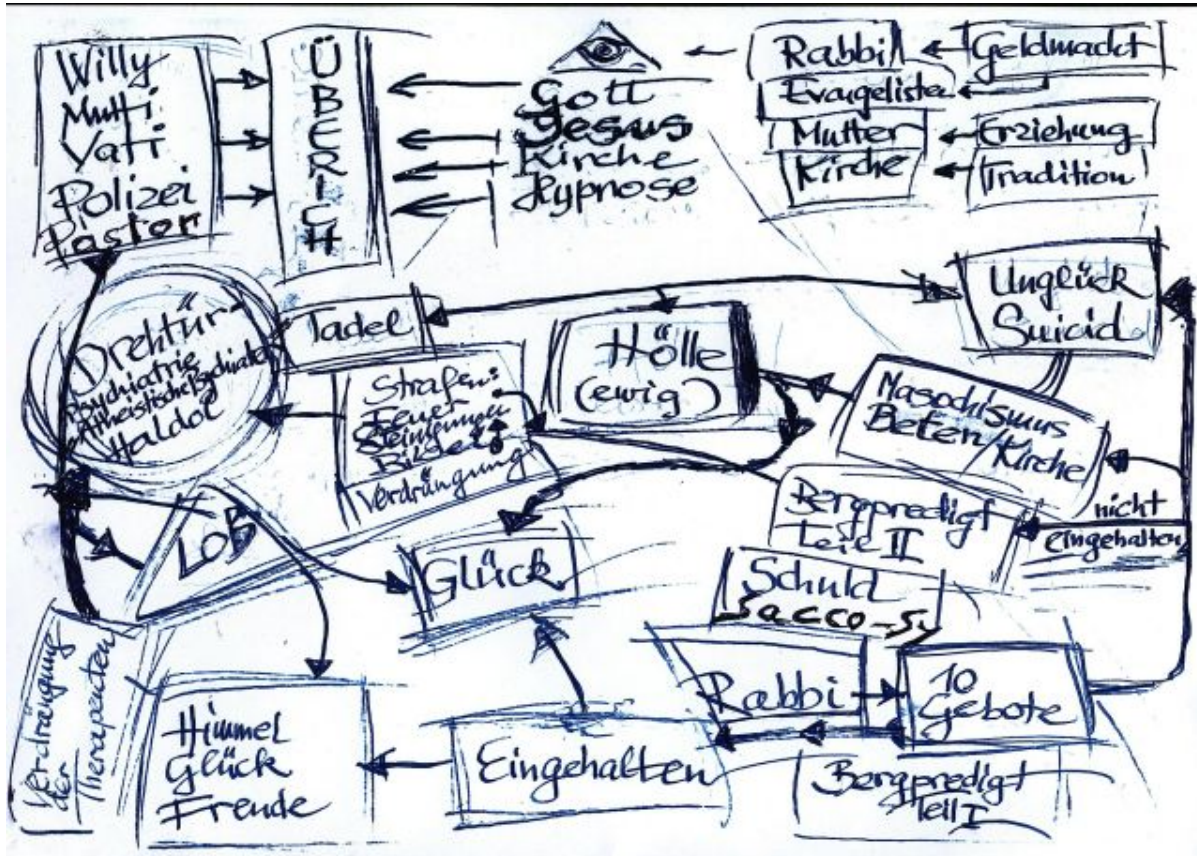 Willy
Mutti
Vati
Polizei
Pastor
ÜBERICH
Gott
Jesus
Kirche
Hypnose
Rabbi
Evangelisten
Mutter
Kirche
Geldmacht
Erziehung
Tradition
Drehtür-
Psychiatrie
Atheistische Psychiater
Haldol
Tadel
Strafen:
Feuer
Steinigung
Bilder
Verdrängung
Hölle
(ewig)
Unglück
Suicid
Masochismus
Beten/Kirche
Bergpredigt
Teil II
nicht
eingehalten
LOB
Glück
Schuld
Sacco-Sy
Rabbi
10
Gebote
Verdrängung
der
Therapeuten
Himmel
Glück
Freude
Eingehalten
Bergpredigt
Teil I